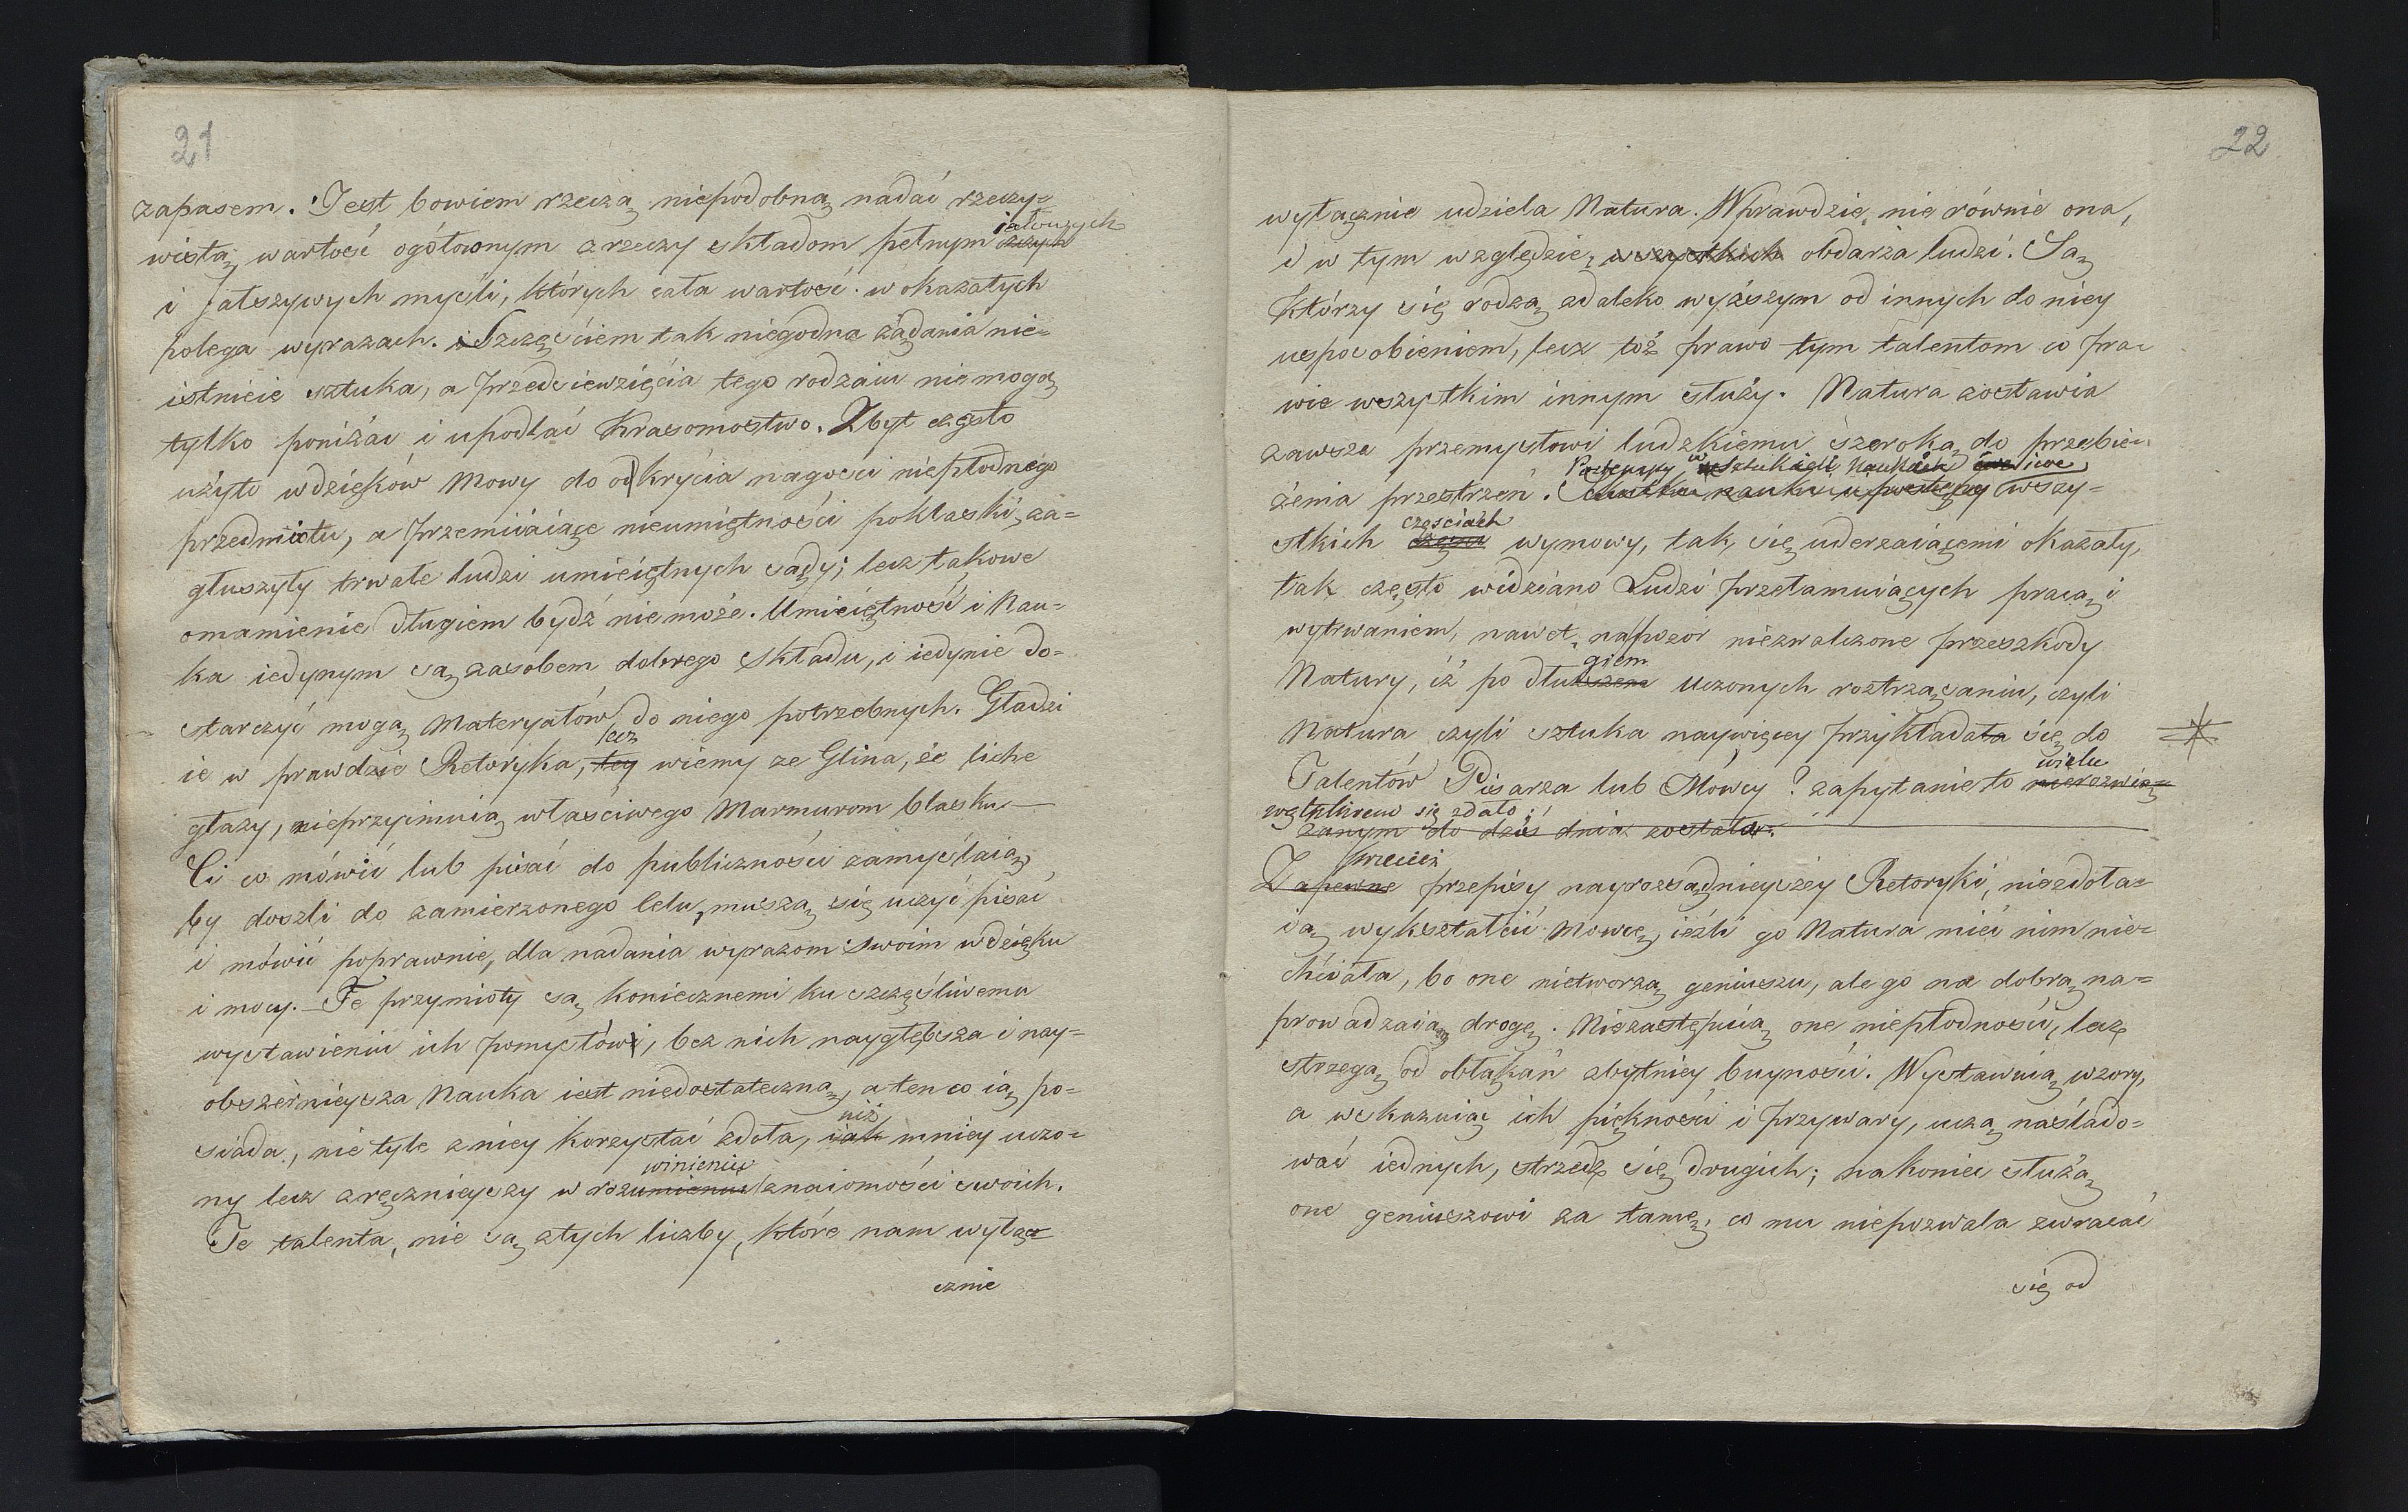 21
zapasem. Jest bowiem rzeczą niepodobną nadać rzeczy=
iałowych
wistą wartość ogółoconym z rzeczy składom pełnym
i fałszywych myśli, których cała wartość w okazałych
polega wyrazach. Szczęściem tak niegodna żądania nie=
istnieie sztuka, a przedsiewzięcia tego rodzaiu nie mogą
tylko poniżać i upodlać Krasomostwo. Zbyt często
użyto wdzięków mowy do okrycia nagości niepłodnego
przedmiotu, a przemiiaiące nieumiętności poklaski, za=
głuszyły trwałe ludzi umieiętnych sądy; lecz takowe
omamienie długiem bydź nie może. Umieiętność i Nau=
ka iedynym są zasobem dobrego składu, i iedynie do=
starczyć mogą Materyałów do niego potrzebnych. Gładzi
lecz
ie w prawdzie Retoryka, tey wiemy ze Glina, że liche
głazy, nieprzyimuią właściwego Marmurom blasku —
Ci co mówić lub pisać do publiczności zamyślaią,
by doszli do zamierzonego Celu, muszą się uczyć pisać
i mówić poprawnie, dla nadania wyrazom swoim wdzięku
i mocy. — Te przymioty są koniecznemi ku szczęśliwemu
wystawieniu ich pomysłów, bez nich naygłębsza i nay=
obszernieysza Nauka iest niedostateczną, a ten co ią po=
niż
siada, nie tyle z niey korzystać zdoła, iak mniey uczo=
winieniu
ny lecz zręcznieyszy w rozumieniu znaiomości swoich.
Te talenta, nie są z tych liczby, które nam wyłą=
cznie
22
wyłącznie udziela Natura. Wprawdzie nie równie ona,
i w tym względzie, wszystkich obdarza ludzi. Są
Którzy się rodzą z daleko wyższym od innych do niey
usposobieniem, lecz toż prawo tym talentom co pra=
wie wszystkim innym służy. Natura zostawia
zawsze przemysłowi ludzkiemu szeroką do przebie=
Postempy w
żenia przestrzeń. wszy=
częściach
stkich wymowy, tak się uderzaiącemi okazały,
tak często widziano Ludzi przełamuiących pracą i
wytrwaniem, nawet na pozór niezwalczone przeszkody
giem
Natury, iż po dłuższem Uczonych roztrząsaniu, czyli
Natura czyli sztuka naywięcey przykładała się do
wielu
Talentów Pisarza lub Mówcy? zapytanie to nierozwią=
wątpliwem się zdało;
zanym do dziś dnia zostało.
przecież
Zapewne przepisy nayrozsądnieyszey Retoryki, niezdoła=
ią wykształcić Mowcę, ieźli go Natura mieć nim nie=
chciała, bo one nietworzą geniuszu, ale go na dobrą na=
prowadzaią drogę. Niezastępuią one niepłodności, lecz
strzegą od obłąkań zbytniey buyności. Wystawuią wzory,
a wskazuiąc ich piękności i przywary, uczą naślado=
wać iednych, strzedz się drugich; nakoniec służą
one geniuszowi za tamę, co mu niepozwala zwracać
się od